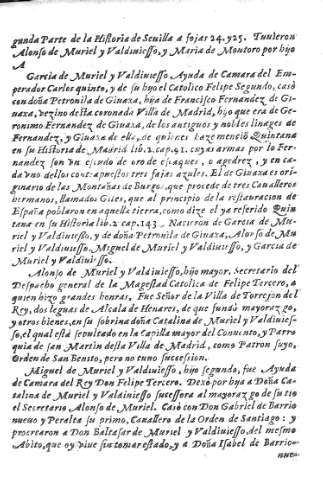 gunda Parte de la Historia de Sevilla a fojas 24. y 25. Tuvieron
Alonso de Muriel y Valdiviesso, y Maria de Montoro por hijo
A
Garcia de Muriel y Valdiviesso Ayuda de Camara del Em-
perador Carlos quinto, y de su hijo el Catolico Felipe Segundo, casò
con doña Petronila de Giuaza, hija de Francisco Fernandez de Gi-
uaza, vezino desta coronada Villa de Madrid, hijo que era de Ge-
ronimo Fernandez de Giuaza, de los antiguos y nobles linages de
Fernandez, y Giuaza de ella, de quienes haze menciō Quintana
en su Historia de Madrid lib. 2. cap. 91. cuyas armas por lo Fer-
nandez son un escudo de oro de esaques, o agedrez, y en ca-
da vno dellos contrapuestos tres fajas azules. El de Giuaza es ori-
ginario de las Montañas de Burgos, que procede de tres Caualleros
hermanos, llamados Giles, que al principio de la restauracion de
España poblaron en aquella tierra, como dize el ya referido Quin
tana en su Historia lib. 2. cap. 143. Nacieron de Garcia de Mu-
riel y Valdiviesso, y de doña Petronila de Giuaza, Alonso de Mu
riel y Valdiviesso, Miguel de Muriel y Valdiviesso, y Garcia de
Muriel y Valdiviesso.
Alonso de Muriel y Valdiviesso, hijo mayor, Secretario del
Despacho general de la Magestad Catolica de Felipe Tercero, a
quien hizo grandes honras, Fue Señor de la Villa de Torrejon del
Rey, dos leguas de Alcala de Henares, de que fundò mayorazgo,
y otros bienes, en su sobrina doña Catalina de Muriel y Valdivies-
so, el qual està sepultado en la capilla mayor del Conuento, y Parro
quia de san Martin desta Villa de Madrid, como Patron suyo,
Orden de San Benito, pero no tuuo sucession.
Miguel de Muriel y Valdiviesso, hijo segundo, fue Ayuda
de Camara del Rey Don Felipe Tercero. Dexò por hija a Doña Ca-
talina de Muriel y Valdiviesso sucessora al mayorazgo de su tio
el Secretario Alonso de Muriel. Casò con Don Gabriel de Barrio
nueuo y Peralta su primo, Cauallero de la Orden de Santiago: y
procrearon a Don Baltasar de Muriel y Valdiviesso, del mesmo
Abito, que oy viue sin tomar estado, y a Doña Isabel de Barrio-
nueu-